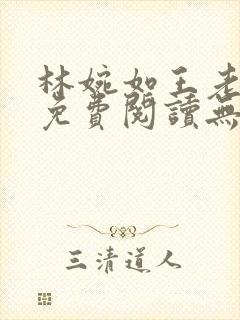 林婉如王老
免費閱讀無
三清道人